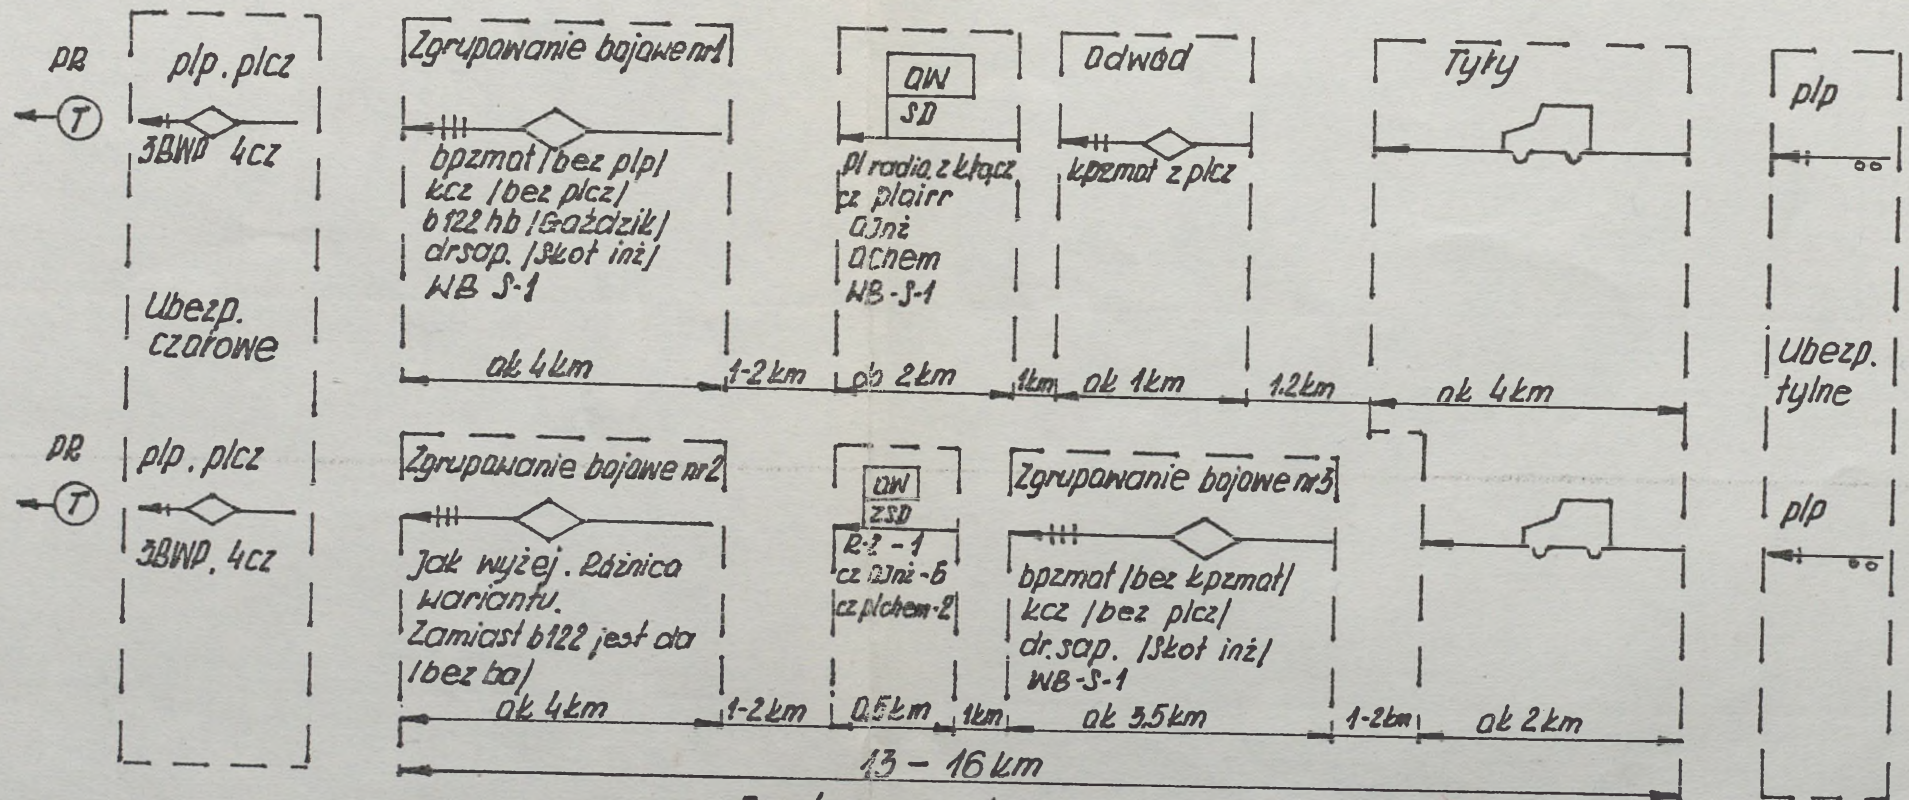 PR
T
plp. plcz
3BWP 4cz
Ubezp.
czołowe
Zgrupowanie bojowe nr1
bpzmot /bez plp/
kcz /bez plcz/
b122 hb /Goździk/
dr sap. /Skot inż/
WB S-1
ok 4km
1-2km
OW
SD
pl radio. z kłącz
cz plairr
OInż
Ochem
WB-S-1
ok 2km
1km
Odwód
kpzmot z plcz
ok 1km
1.2km
Tyły
ok 4km
plp
Ubezp.
tylne
PR
T
plp. plcz
3BWP. 4cz
Zgrupowanie bojowe nr2
Jak wyżej. Różnica
wariantu.
Zamiast b122 jest da
/bez ba/
ok 4km
1-2km
OW
ZSD
R-2-1
cz OInż-6
cz plchem-2
0,5km
1km
Zgrupowanie bojowe nr3
bpzmot /bez kpzmot/
kcz /bez plcz/
dr. sap. /Skot inż/
WB-S-1
ok 3.5km
1-2km
ok 2km
plp
13 - 16 km